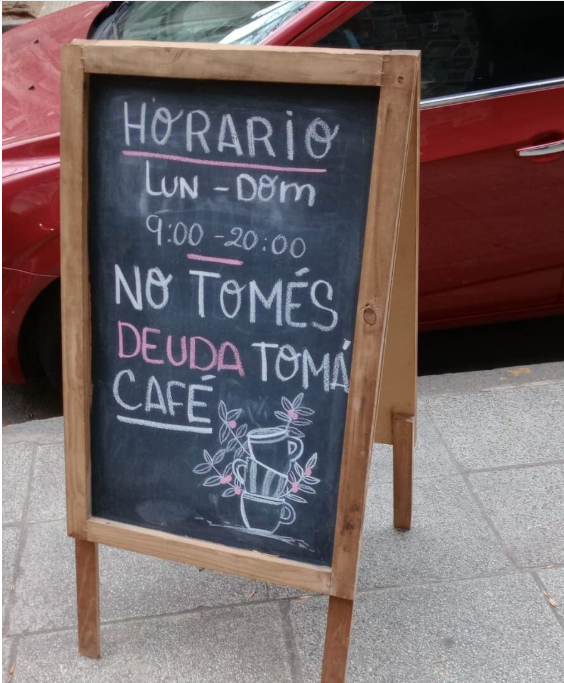 HORARIO
LUN - DOM
9:00 - 20:00
NO TOMÉS
DEUDA TOMÁ
CAFÉ